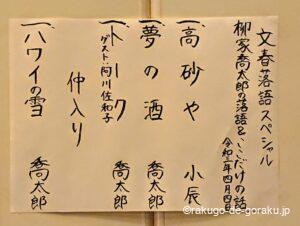 文春落語スペシャル
柳家喬太郎の落語とここだけの話
令和三年四月四日
一、高砂や 小辰
一、夢の酒 喬太郎
一、トーク 喬太郎
ゲスト:阿川佐和子
仲入り
一、ハワイの雪 喬太郎
©rakugo-de-goraku.jp